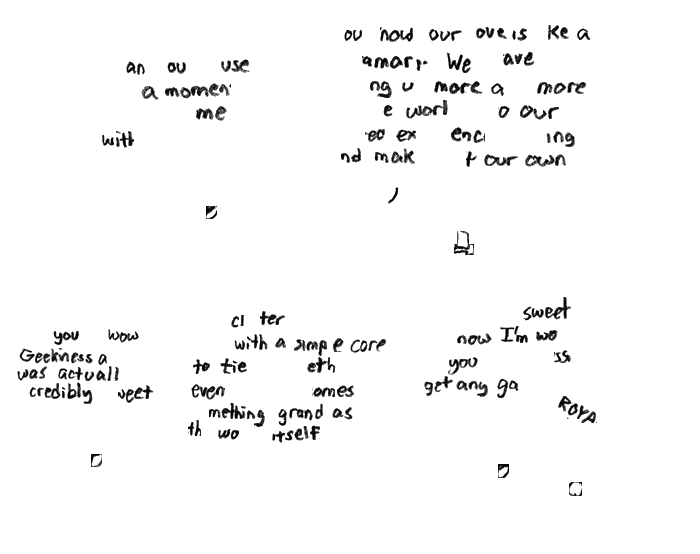 an ou use
a momen
me
with
ou now our ove is ke a
We ave
ng u more a more
e worl o our
ex enc ing
nd mak t our own
you wow
Geekiness a
was actuall
credibly weet
cl ter
with a simp e core
to tie eth
even omes
mething grand as
th wo itself
sweet
now I'm wo
you
get any ga
ROYA